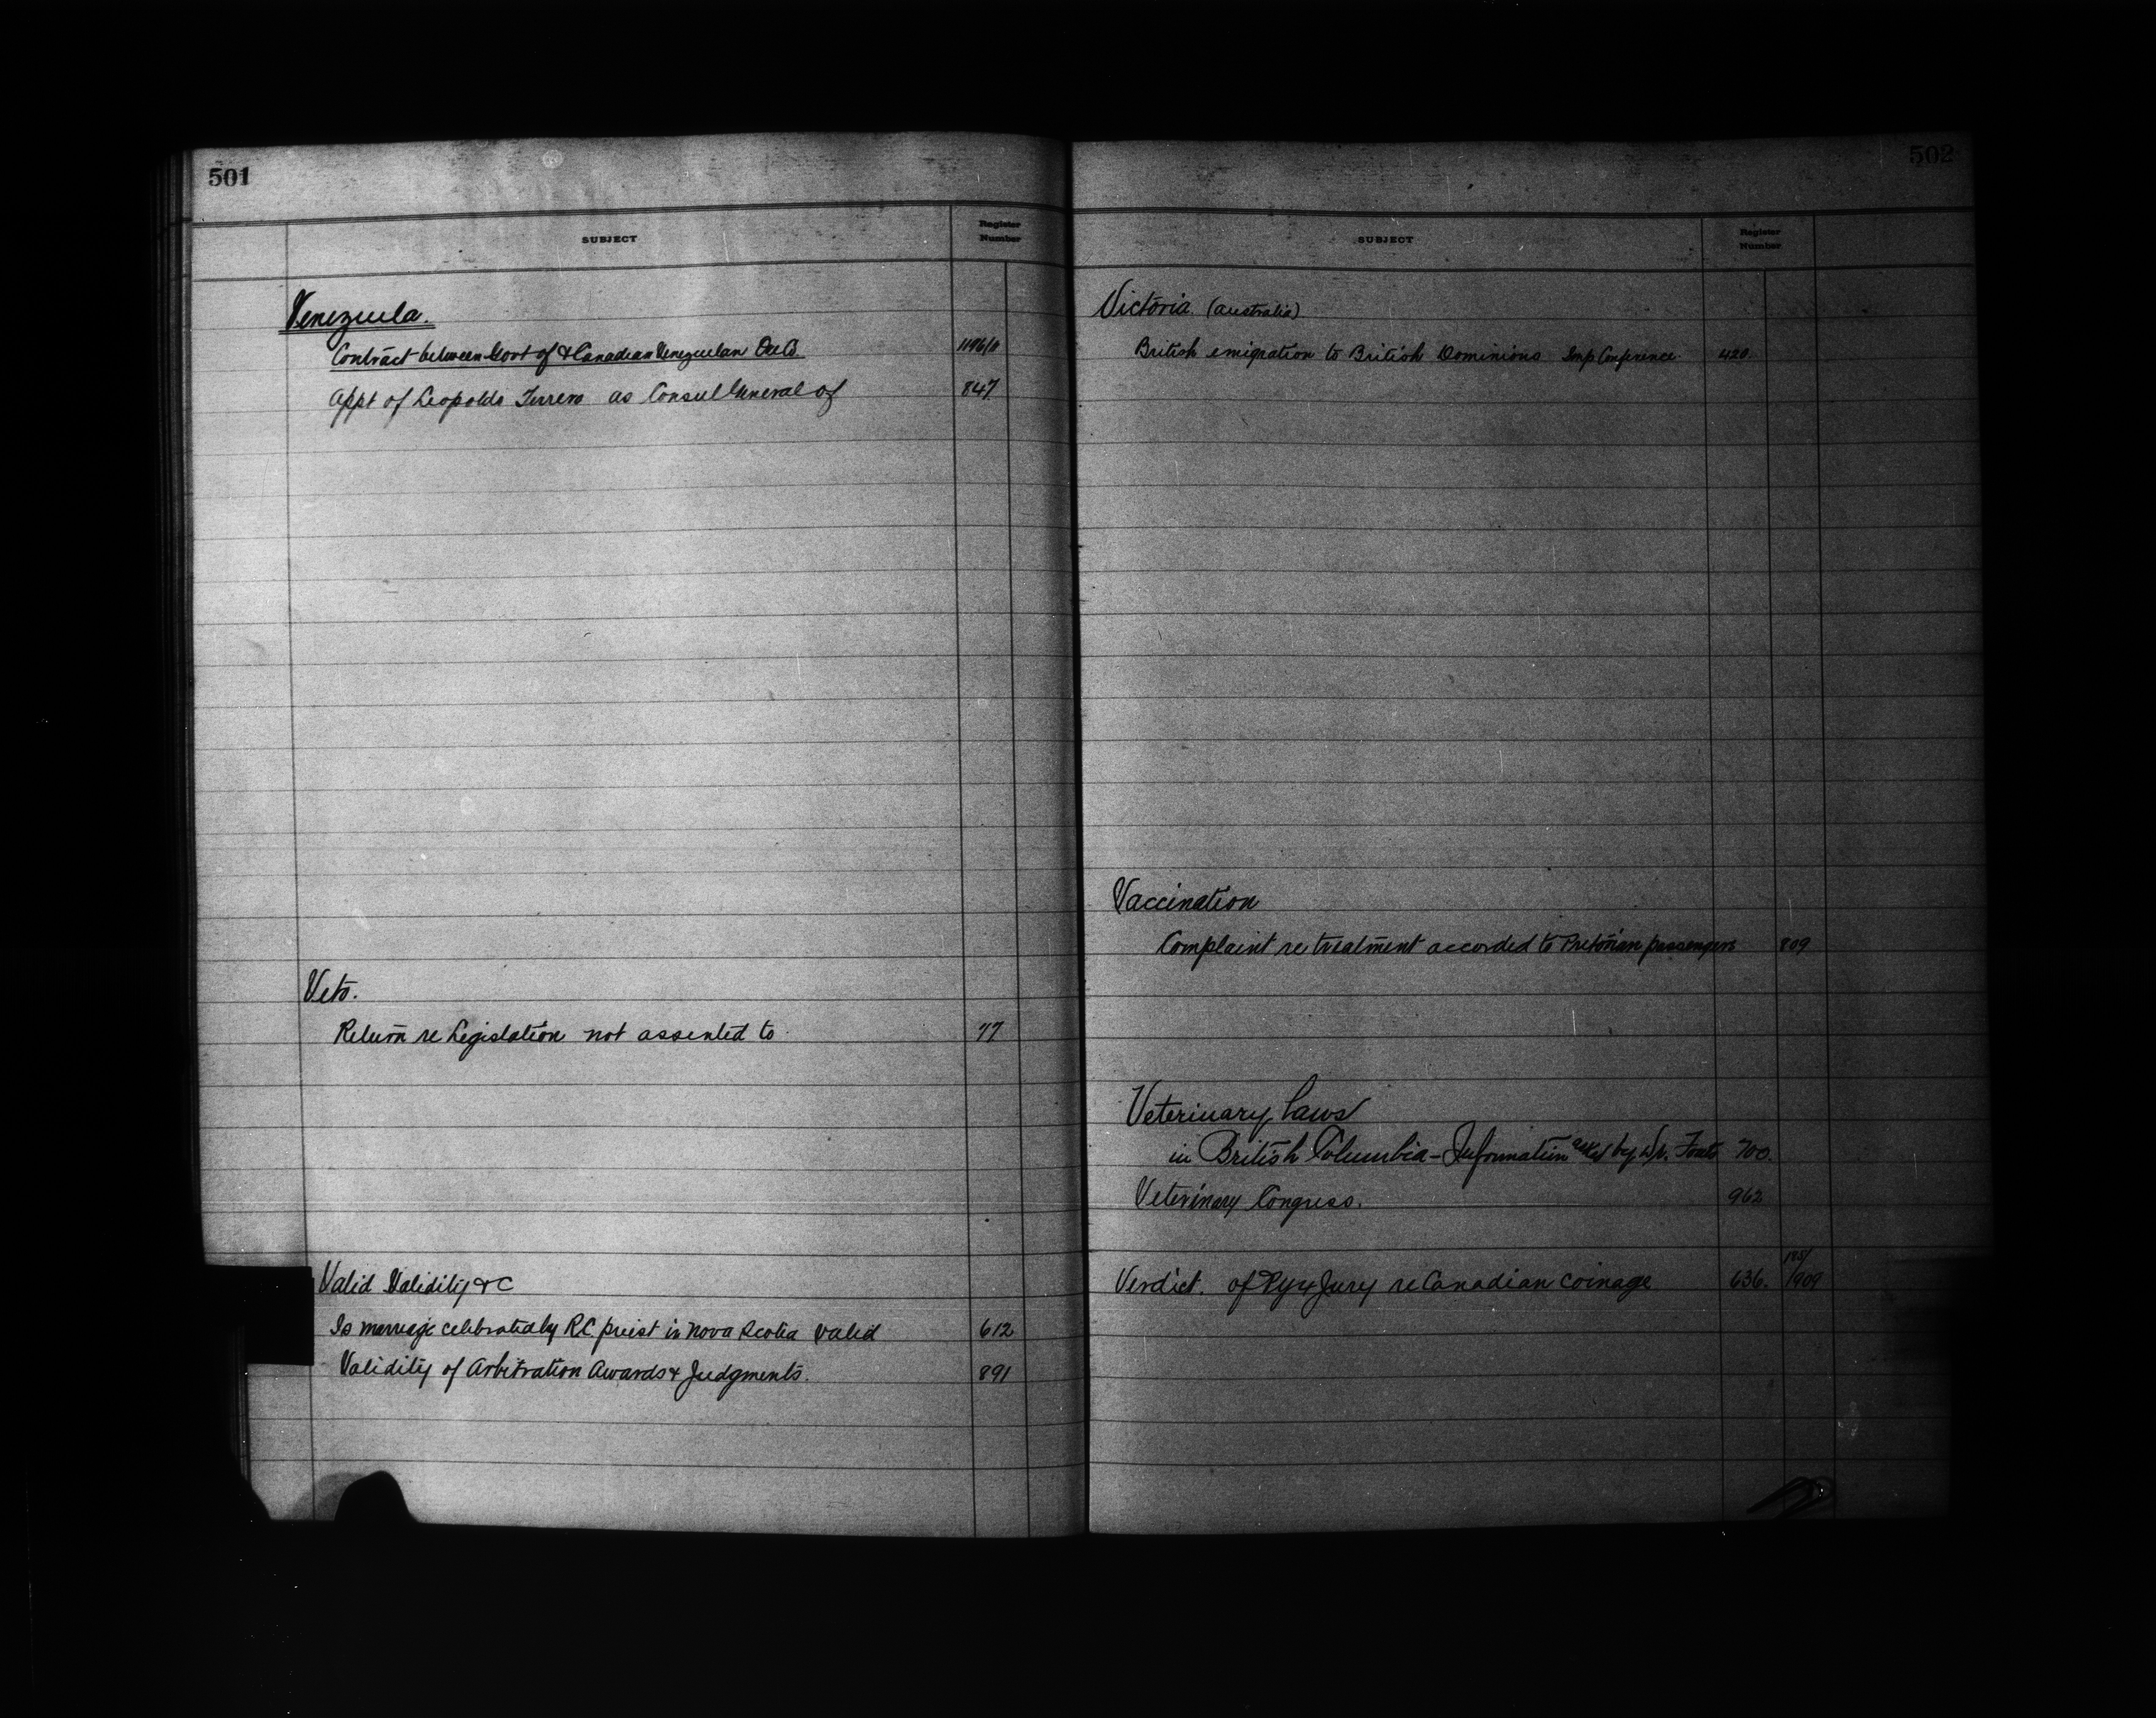 501
SUBJECT
Register
Number
Venezuela.
Contract between Govt of & Canadian Venezuelan Ore Co. 1196/11
Appt of Leopoldo Terrero as Consul General of 847
Veto.
Return re Legislation not assented to 77
Valid Validity &C
Is marriage celebrated by R.C. priest in Nova Scotia valid 612
Validity of Arbitration Awards & Judgments. 891
502
SUBJECT
Register
Number
Victoria (Australia)
British emigration to British Dominions Imp Conference. 420
Vaccination
Complaint re treatment accorded to Pretorian passengers 809
Veterinary Laws
in British Columbia - Information asked by Dr. 700.
Veterinary Congress. 962
Verdict. of Pyx Jury re Canadian coinage 636. 1909